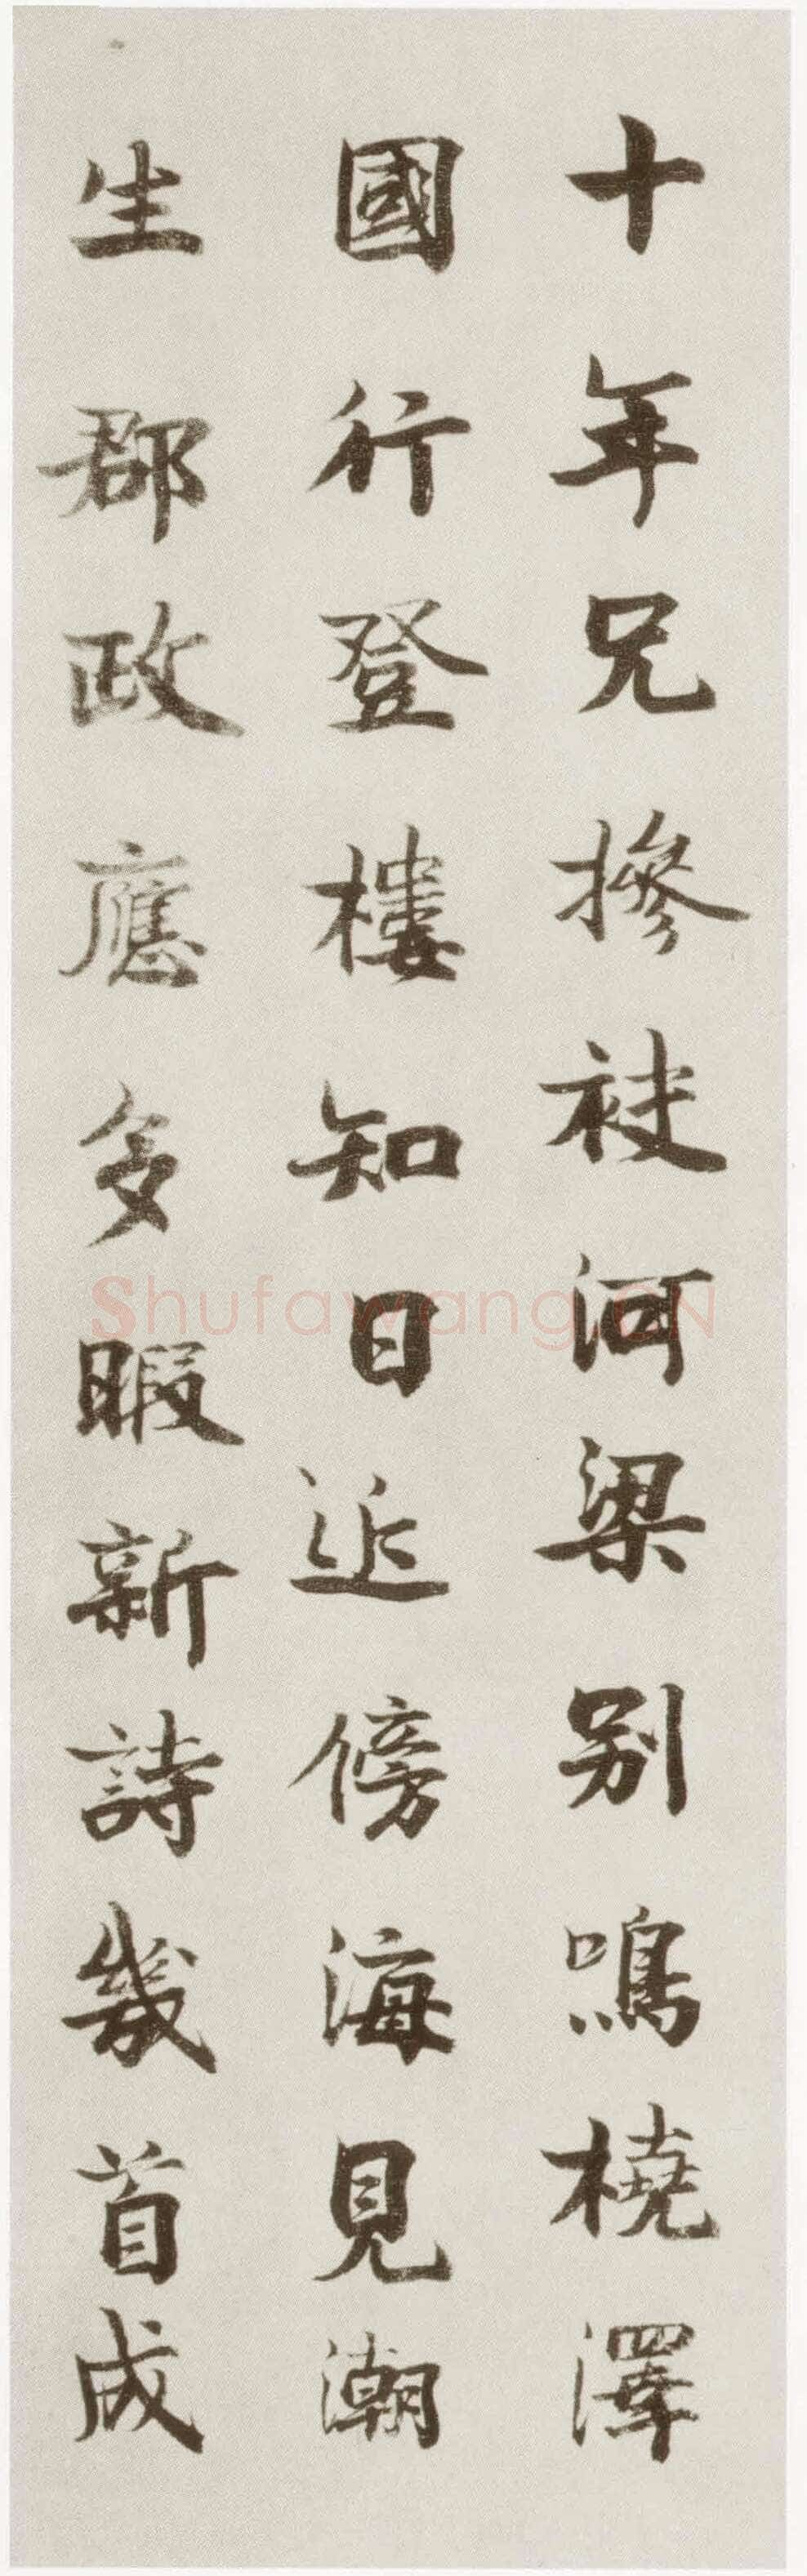 十年兄摻袂河梁别鳴橈澤
國行登樓知日近傍海見潮
生郡政應多暇新詩幾首成
Shufawang.CN